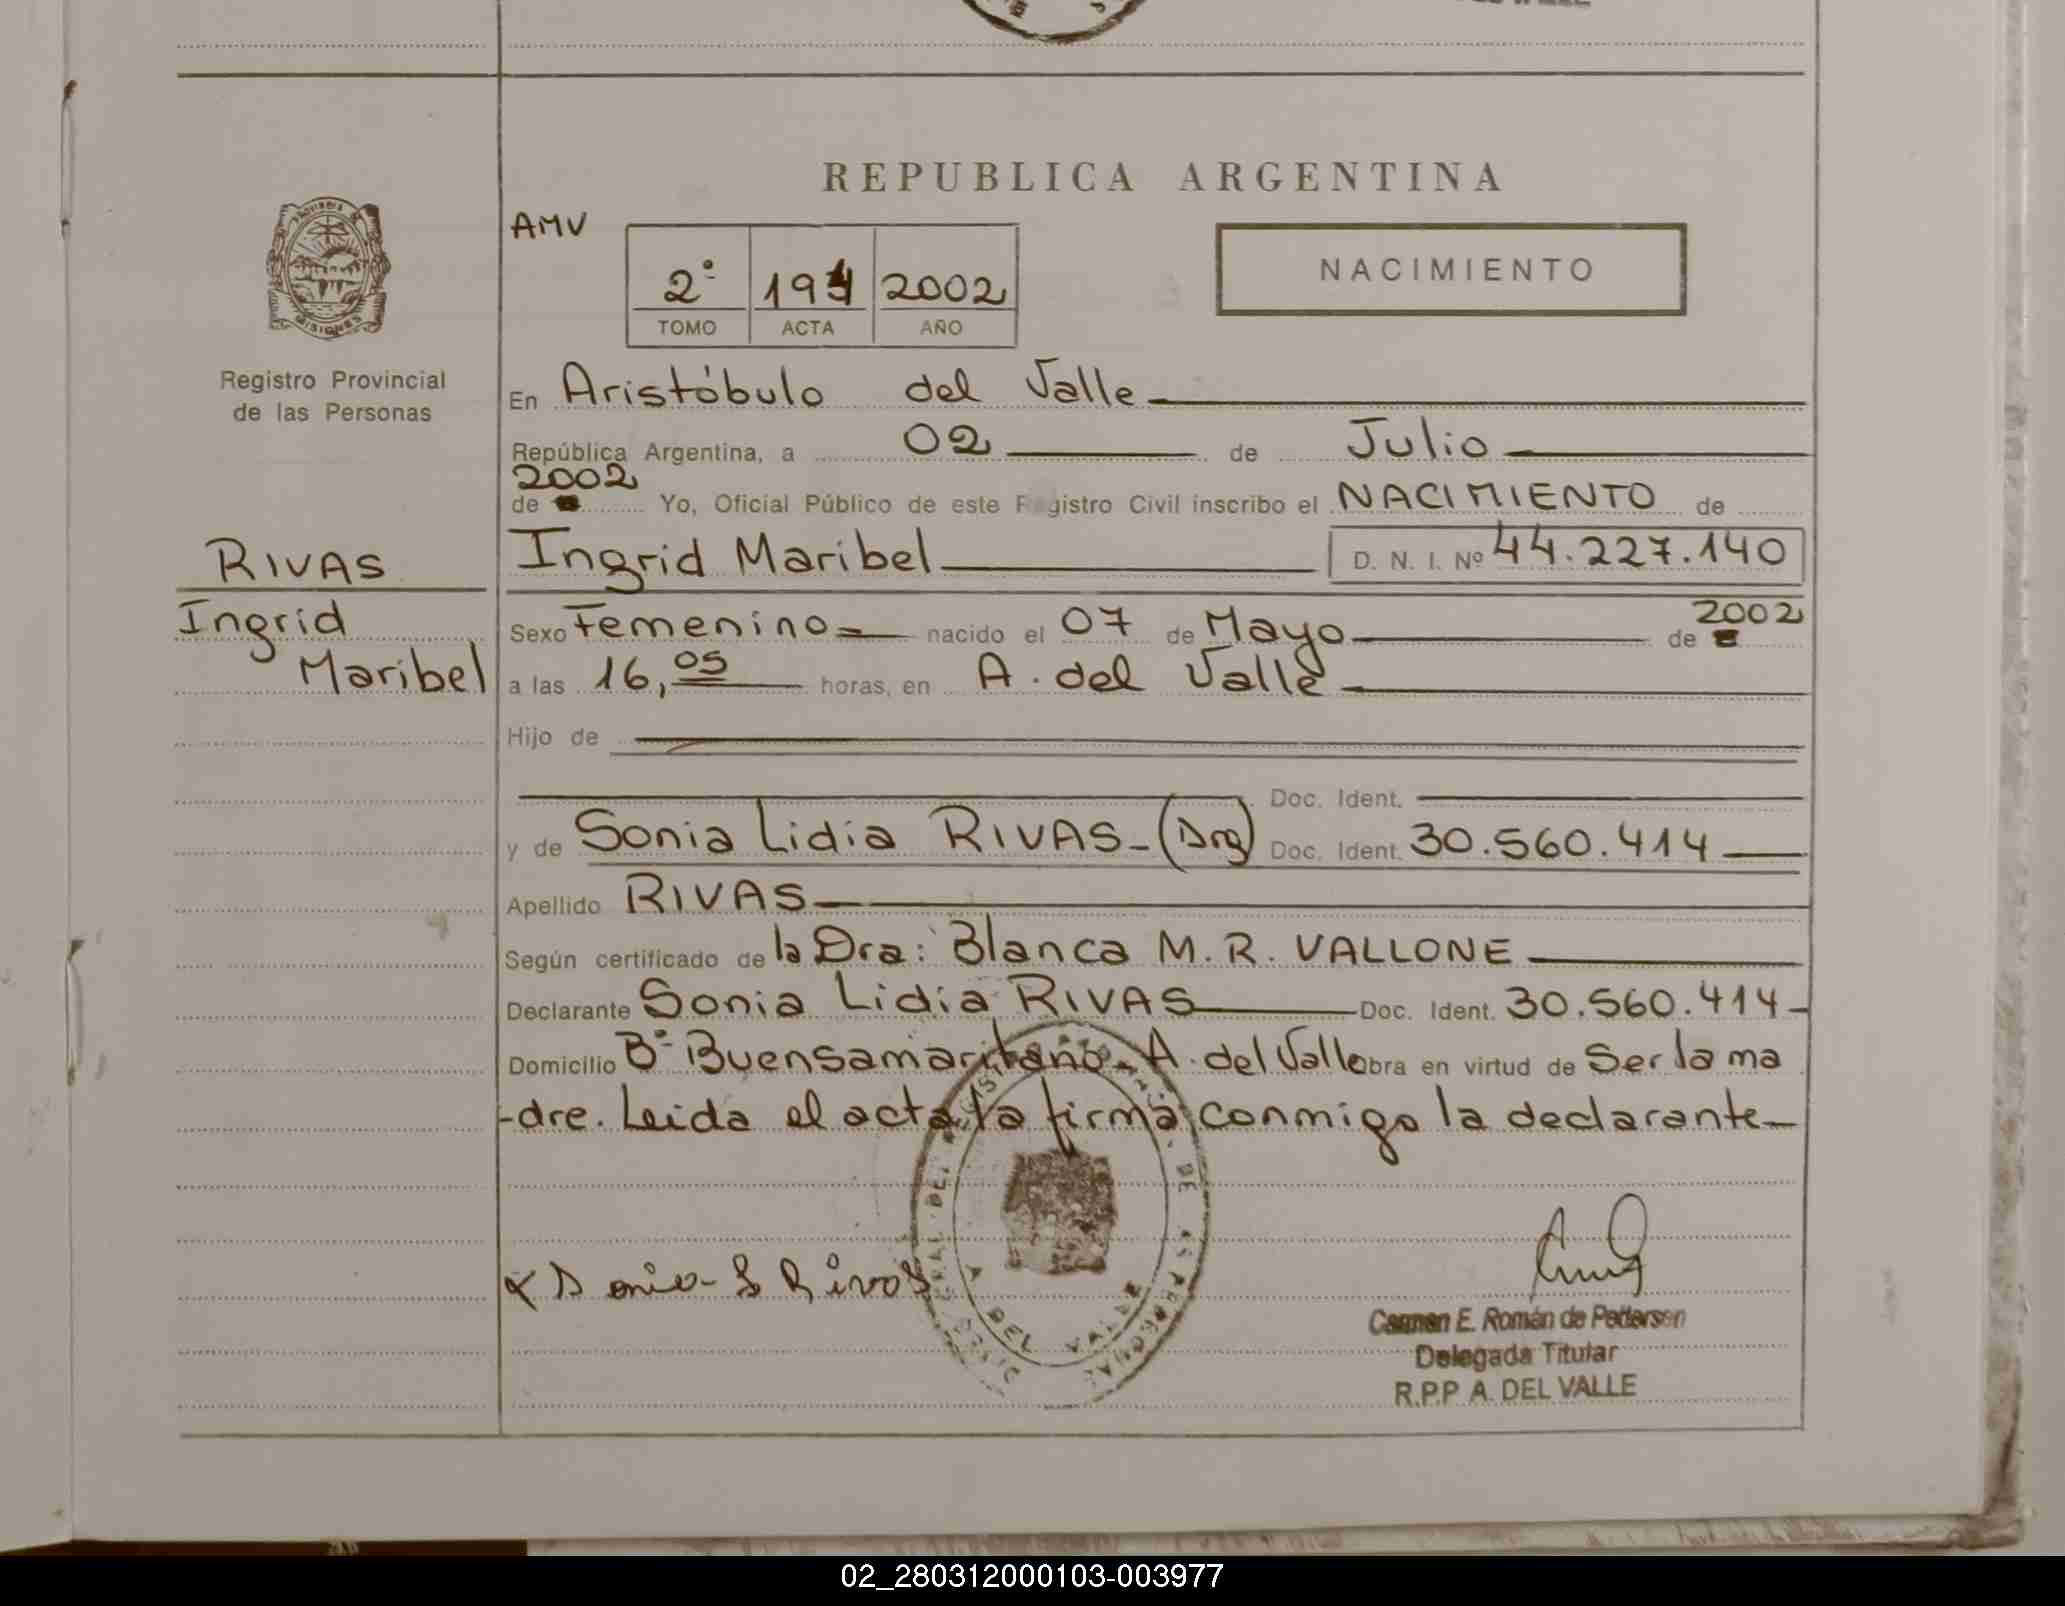 REPUBLICA ARGENTINA
AMV
2º
TOMO
ACTA
2002
AÑO
NACIMIENTO
MISIONES
Registro Provincial
de las Personas
En Aristóbulo del Valle
República Argentina, a 02 de Julio
2002
de Yo, Oficial Público de este Registro Civil inscribo el NACIMIENTO de
RIVAS
Ingrid
Maribel
Ingrid Maribel D. N. I. Nº 44.227.140
2002
Sexo Femenino nacido el 07 de Mayo de
a las 16,05 horas, en A. del Valle
Hijo de
Doc. Ident.
y de Sonia Lidia RIVAS-(Arg) Doc. Ident. 30.560.414
Apellido RIVAS
Según certificado de la Dra: Blanca M. R. VALLONE
Declarante Sonia Lidia RIVAS Doc. Ident. 30.560.414-
Domicilio Bº Buensamaritano. A. del Valle obra en virtud de Ser la ma
-dre. Leida el acta la firma conmigo la declarante-
A DEL VALLE
Carmen E. Román de Pedersen
Delegada Titular
R.P.P A. DEL VALLE
02_280312000103-003977